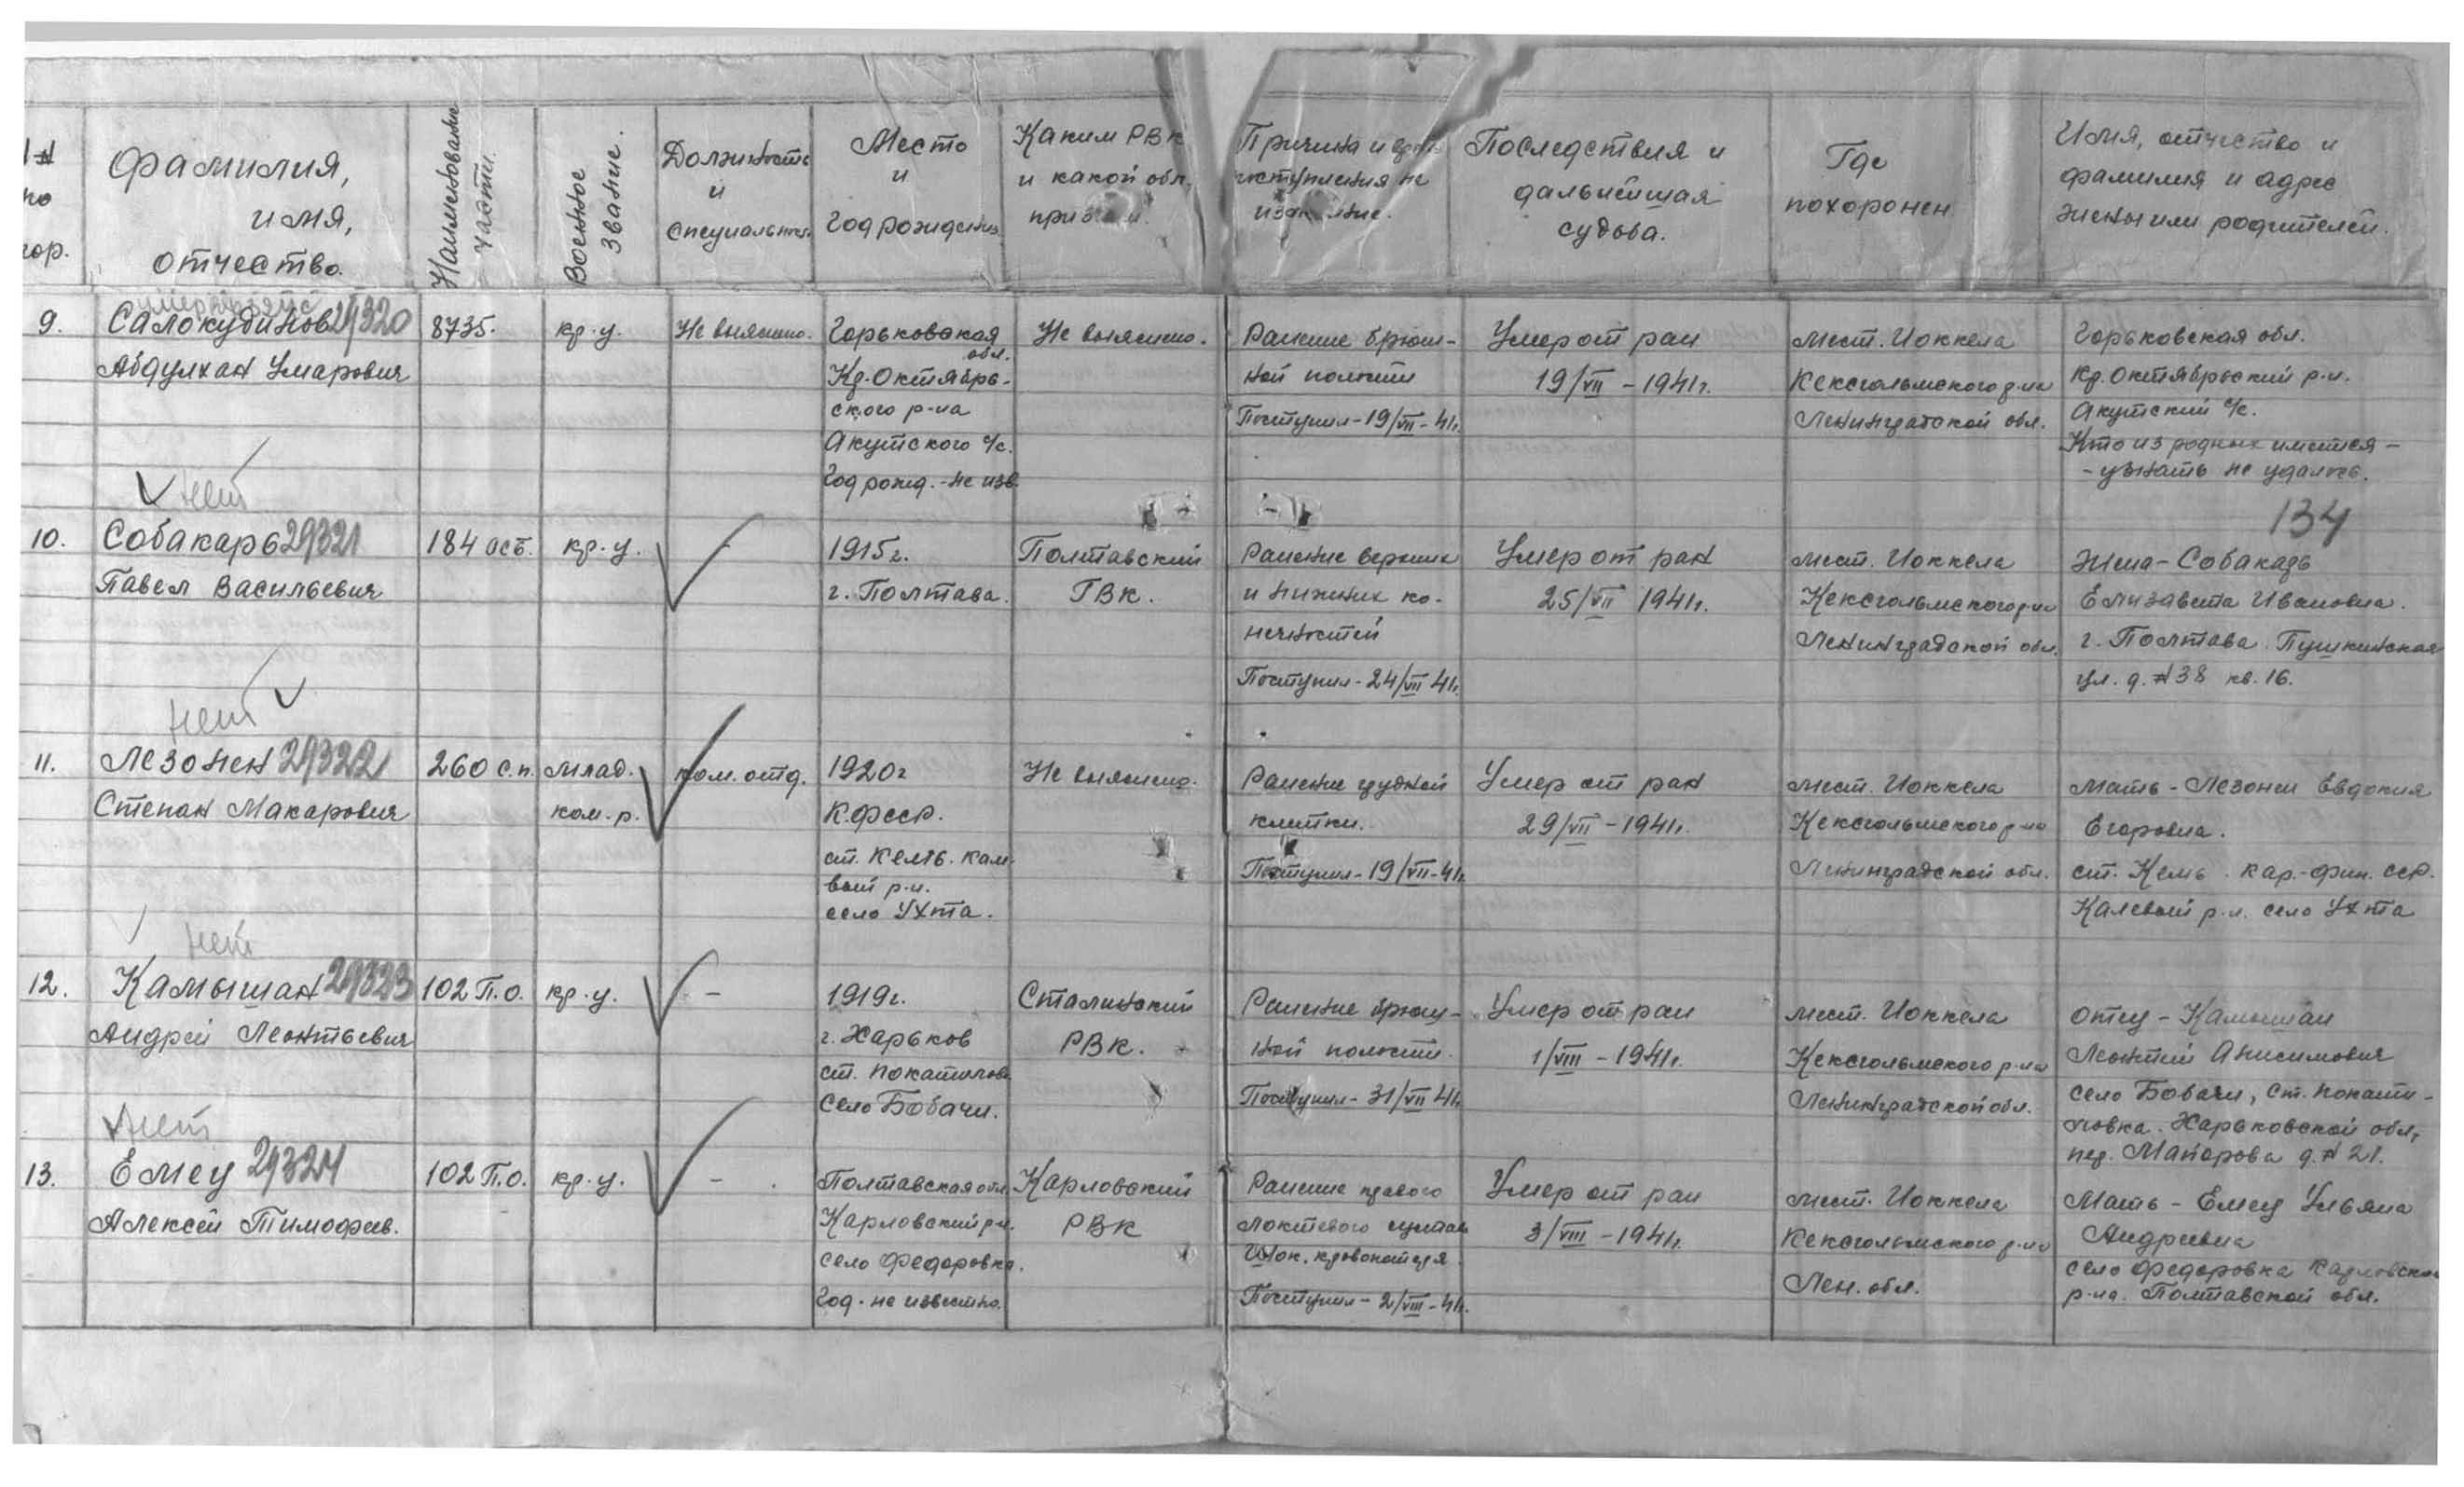 №
по
пор.
Фамилия,
имя,
отчество.
Наименование
части.
Военное
звание.
Должность
и
специальность.
Место
и
год рождения.
Каким РВК
и какой обл.
призван.
Причина и дата
поступления на
Последствия и
дальнейшая
судьба.
Где
похоронен
Имя, отчество и
фамилия и адрес
жены или родителей.
9.
Салокудинов 29320
Абдулхан Умарович
8735.
кр-ц.
Не выяснено.
Горьковская
обл.
Кр. Октябрь-
ского р-на
Акутского с/с.
Год рожд. - не изв.
Не выяснено.
Ранение брюш-
ной полости
Поступил - 19/VII - 41г.
Умер от ран
19/VII - 1941г.
мест. Иоккела
Кексгольмского р-на
Ленинградской обл.
Горьковская обл.
Кр. Октябрьский р-н.
Акутский с/с.
Кто из родных имеется -
- узнать не удалось.
134
нет
10.
Собакарь 29321
Павел Васильевич
184 осб.
кр-ц.
-
1915г.
г. Полтава.
Полтавский
ГВК.
Ранение верхних
и нижних ко-
нечностей
Поступил - 24/VII 41г.
Умер от ран
25/VII 1941г.
мест. Иоккела
Кексгольмского р-на
Ленинградской обл.
Жена - Собакарь
Елизавета Ивановна.
г. Полтава Пушкинская
ул. д. № 38 кв. 16.
нет
11.
Лезонен 29322
Степан Макарович
260 с.п.
млад.
ком-р.
ком. отд.
1920г
К.Ф.ССР.
ст. Кемь. Кале-
вый р-н.
село Ухта.
Не выяснено.
Ранение грудной
клетки.
Поступил - 19/VII - 41г.
Умер от ран
29/VII - 1941г.
мест. Иоккела
Кексгольмского р-на
Ленинградской обл.
Мать - Лезонен Евдокия
Егоровна.
ст. Кемь. Кар.-Фин. ССР.
Калевый р-н. село Ухта
нет
12.
Камышан 29323
Андрей Леонтьевич
102 П.О.
кр-ц.
-
1919г.
г. Харьков
ст. Покатиловк.
село Бобачи.
Сталинский
РВК.
Ранение брюш-
ной полости.
Поступил - 31/VII 41г.
Умер от ран
1/VIII - 1941г.
мест. Иоккела
Кексгольмского р-на
Ленинградской обл.
Отец - Камышан
Леонтий Анисимович
село Бобачи, ст. Покати-
ловка. Харьковской обл,
пер. Макарова д. № 21.
нет
13.
Емец 29324
Алексей Тимофеев.
102 П.О.
кр-ц.
-
Полтавская обл.
Карловский р-н.
село Федоровка.
Год - не известно.
Карловский
РВК
Ранение правого
локтевого сустава
Шок. кровопотеря.
Поступил - 2/VIII - 41г.
Умер от ран
3/VIII - 1941г.
мест. Иоккела
Кексгольмского р-на
Лен. обл.
Мать - Емец Ульяна
Андреевна
село Федоровка Карловск.
р-на. Полтавской обл.